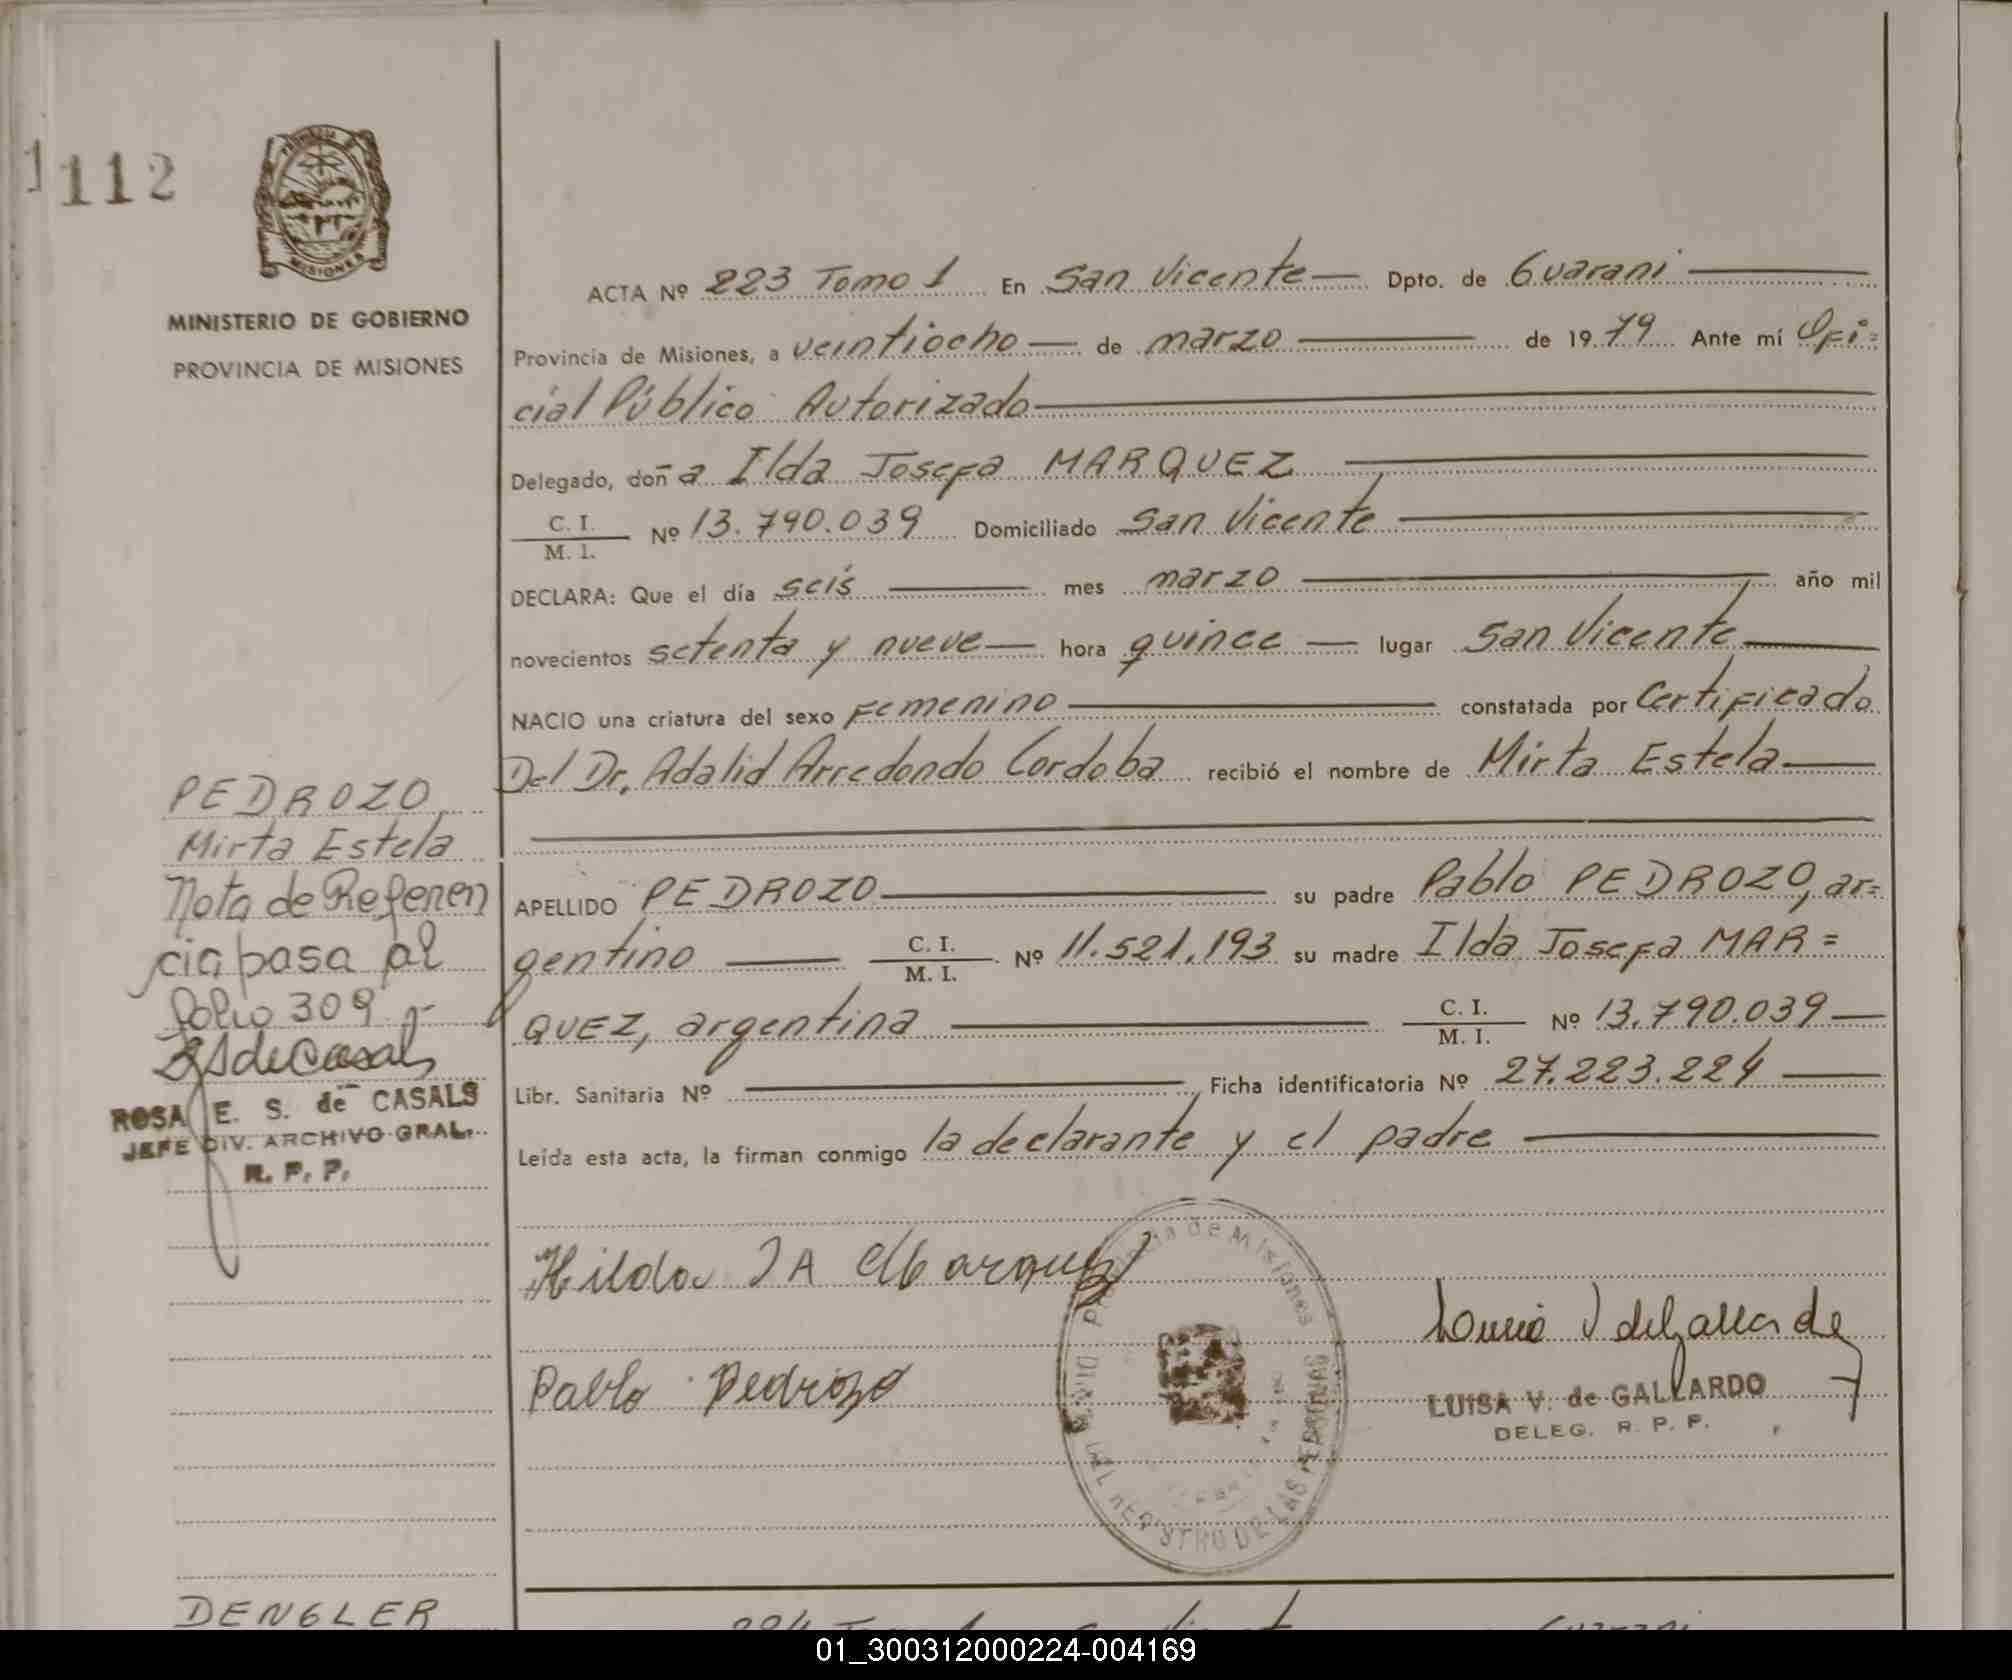 1112
MISIONES
MINISTERIO DE GOBIERNO
PROVINCIA DE MISIONES
ACTA Nº 223 Tomo 1 En San Vicente — Dpto. de Guarani —
Provincia de Misiones, a veintiocho — de marzo — de 1979 Ante mí Ofi=
cial Público Autorizado —
Delegado, doña Ilda Josefa MARQUEZ —
C. I.
M. I. Nº 13.790.039 Domiciliado San Vicente —
DECLARA: Que el día seis — mes marzo — año mil
novecientos setenta y nueve — hora quince — lugar San Vicente —
NACIO una criatura del sexo Femenino — constatada por Certificado
Del Dr. Adalid Arredondo Cordoba recibió el nombre de Mirta Estela —
APELLIDO PEDROZO — su padre Pablo PEDROZO, ar=
gentino — C. I.
M. I. Nº 11.521.193 su madre Ilda Josefa MAR=
QUEZ, argentina — C. I.
M. I. Nº 13.790.039 —
Libr. Sanitaria Nº — Ficha identificatoria Nº 27.223.224 —
Leída esta acta, la firman conmigo la declarante y el padre —
PEDROZO
Mirta Estela
Nota de Referen
cia pasa al
folio 309
ROSA E. S. de CASALS
JEFE DIV. ARCHIVO GRAL.
R. P. P.
Hilda JA Marquez
Pablo Pedrozo
Provincia de Misiones
REGISTRO DE LAS PERSONAS
LUISA V. de GALLARDO
DELEG. R. P. P.
DENGLER
01_300312000224-004169